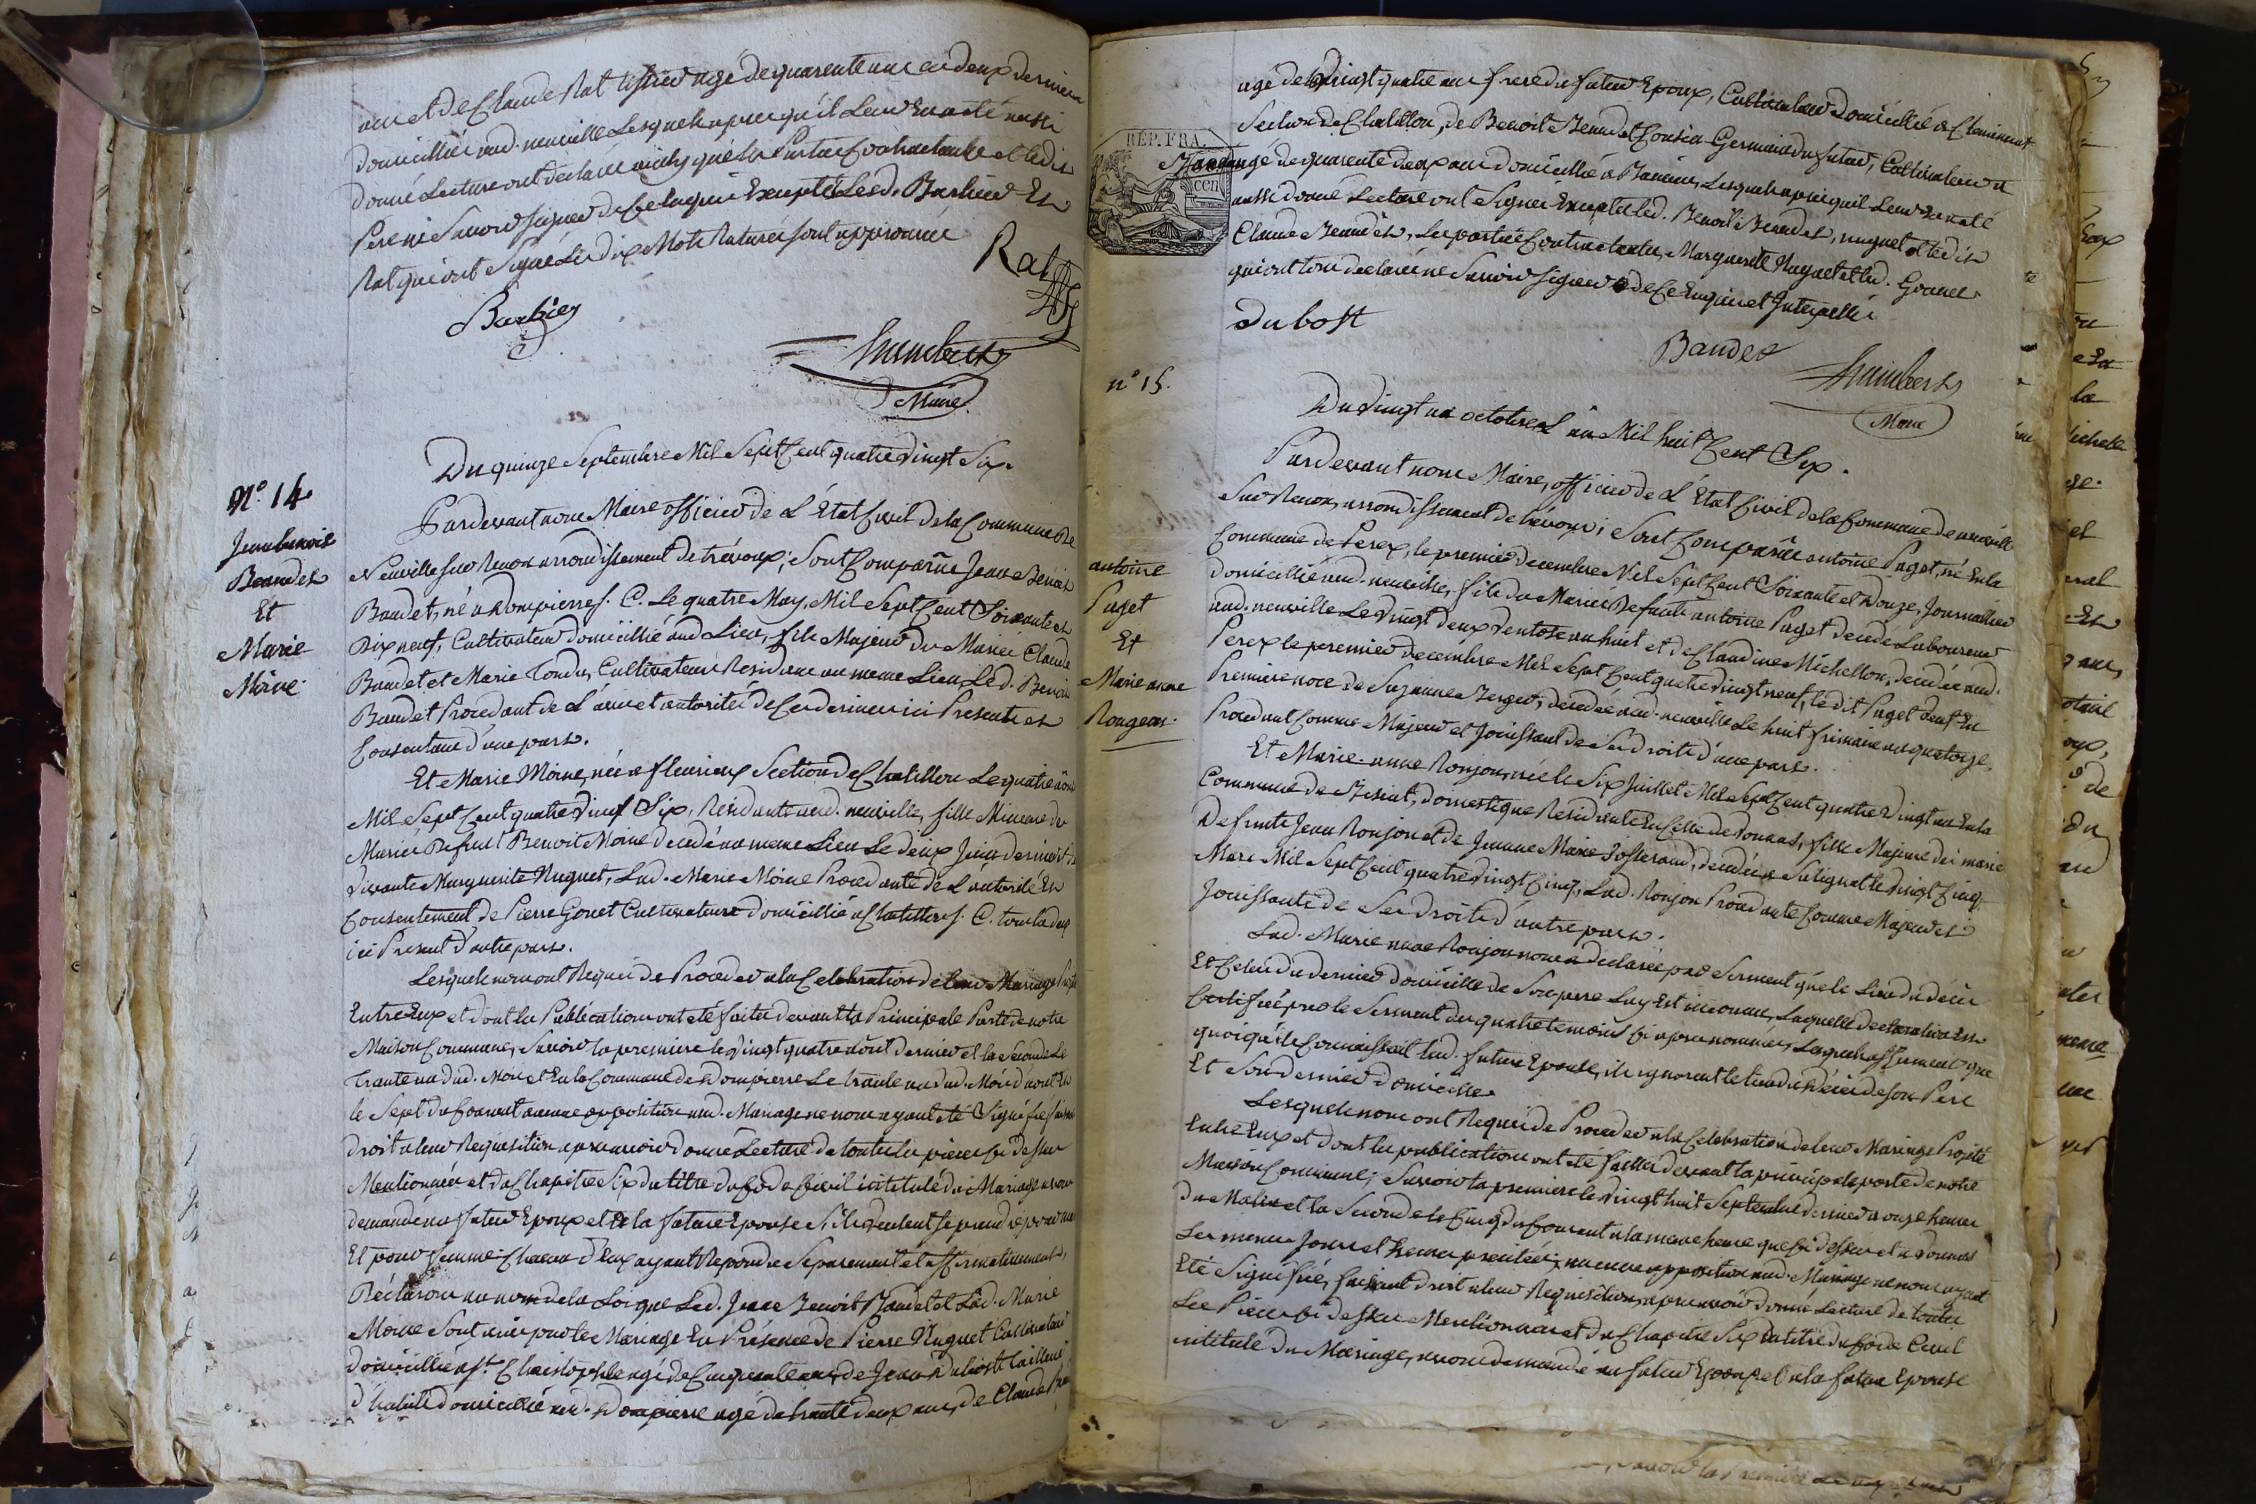 ans et de Claude Rat tissier agé de quarante ans ces deux derniers
domiciliés aud. neuville Lesquels après qu'il Leur En a été aussi
donné Lecture ont déclaré ainsy que Les Parties Contractantes et Ledit
Pere ne Savoir signer de Ce Enquis Excepté Lesd. Barbier Et
Rat qui ont Signé Les dix Mots Raturés sont approuvés
Rat
Barbier
humbert
Maire
Du quinze Septembre Mil Sept Cent quatre Vingt Six.
N.° 14
Jean benoit
Beaudet
Et
Marie
Moine
Pardevant nous Maire officier de L'Etat Civil de la Commune de
Neuville sur Renon arrondissement de trévoux; Sont Comparus Jean Benoit
Baudet, né a Dompierre s. C. Le quatre May, Mil Sept Cent Soixante et
Dix neuf, Cultivateur domicillié aud Lieu, fils Majeur du Mariés Claude
Baudet et Marie Tondu, Cultivateurs Residens au meme Lieu Led. Benoit
Baudet Procedant de L'avis et autorité de Ces derniers ici Presents et
Consentans d'une part.
Et Marie Moine, née a fleurieux Section de Chatillon Le quatre août
Mil Sept Cent quatre Vingt Six, Residante aud. neuville, fille Mineure du
Mariés Defunt Benoit Moine decedé au meme Lieu Le deux Juin dernier et
Vivante Marguerite Nuguet, Lad. Marie Moine Procedante de L'autorité Et
Consentement de Pierre Gonet Cultivateur domicillié a Chatillon s. C. tous les deux
ici Present d'autre part.
Lesquels nous ont Requis de Proceder a la Celebration de leur Mariage Projeté
Entre Eux et dont Les Publications ont été faites devant La Principale Porte de notre
Maison Commune, Savoir La premiere le Vingt quatre août dernier et la Seconde Le
trente un dud. Mois et En la Commune de Dompierre Le trente un dud. Mois d'août Et
le Sept du Courant aucune opposition aud. Mariage ne nous ayant été Signifiée faisant
droit a leur Requisition apres avoir donné Lecture de toutes les pieces Ci dessus
Mentionnées et du Chapitre Six du titre du Code Civil intitulé du Mariage avons
demandé au futur Epoux et a la future Epouse S'ils veulent se prendre pour mari
Et pour femme Chacun d'Eux ayant Repondu Separement et affirmativement,
Déclarons au nom de la Loi que Led. Jean Benoit Baudet et Lad. Marie
Moine Sont unis par le Mariage En Présence de Pierre Nuguet Cultivateur
domicillié a S.t Christophe agé de Cinquante ans, de Jean Dubost tailleur
d'habits domicillié aud. Dompierre agé de trente deux ans, de Claude
agé de Vingt quatre ans frere du futur Epoux, Cultivateur domicillié a
Section de Chatillon, de Benoit Beaudet Cousin Germain du futur, Cultivateur
agé de quarante deux ans domicillié a Lesquels apres qu'il Leur En a été
aussi donné Lecture ont Signé Excepté Led. Benoit Beaudet, nuguet et ledit
Claude Beaudet, Les parties Contractantes, Marguerite Nuguet et Led. Gonnet
qui ont tous declaré ne Savoir signer de Ce Enquis et Interpellé
REP. FRA.
cen
Dubost
Baudet
humbert
Maire
n° 15.
Du Vingt un octobre L'an Mil huit Cent Six.
antoine
Puget
Et
Marie anne
Rongeon.
Pardevant nous Maire, officier de L'Etat Civil de la Commune de neuville
Sur Renon, arrondissement de trévoux; Sont Comparus antoine Puget, né En la
Commune de Perex, le premier decembre Mil Sept Cent Soixante et Douze, Journallier
domicillié aud. neuville, fils du Mariés Defunts antoine Puget decedé Laboureur
aud. neuville Le Vingt deux Ventose an huit et de Claudine Michellon, decedée aud.
Perex le premier decembre Mil Sept Cent quatre Vingt neuf, ledit Puget Veuf En
Premiere noce de Suzanne Berger, decedée aud. neuville Le huit frimaire an quatorze,
Procedant Comme Majeur et Jouissant de Ses droits d'une part.
Et Marie-anne Ronjon, née le Six Juillet Mil Sept Cent quatre Vingt un En la
Commune de Bisiat, domestique Residante En Celle de Vonnas, fille Majeure des mariés
Defunts Jean Ronjon et de Jeanne Marie Josserand, decedée a Sulignat le Vingt Cinq
Mars Mil Sept Cent quatre Vingt Cinq, Lad. Ronjon Procedante Comme Majeure et
Jouissante de Ses droits d'autre part.
Lad. Marie anne Ronjon nous a declaré par Serment que le Lieu du décès
Et Celui du dernier domicille de Son pere Luy Est inconnu, Laquelle declaration Est
Certifiée par le Serment des quatre temoins Ci apres nommés, Lesquels affirment que
quoiqu'ils Connaissent Lad. future Epouse, ils ignorent le lieu du décès de Son Pere
Et Son dernier domicille.
Lesquels nous ont Requis de Proceder a la Celebration de leur Mariage Projeté
Entre Eux et dont les publications ont été faites devant la principale porte de notre
Maison Commune; Savoir la premiere le Vingt huit Septembre dernier a onze heures
du Matin et la Seconde le Cinq du Courant a la meme heure que Ci dessus et a Vonnas
Les memes Jours et heures precitées; aucune opposition aud. Mariage ne nous ayant
Eté Signifiée, faisant droit a leur Requisition, apres avoir donné Lecture de toutes
Les Pieces Ci dessus Mentionnées et du Chapitre Six du titre du Code Civil
intitulé du Mariage, avons demandé au futur Epoux et a la future Epouse